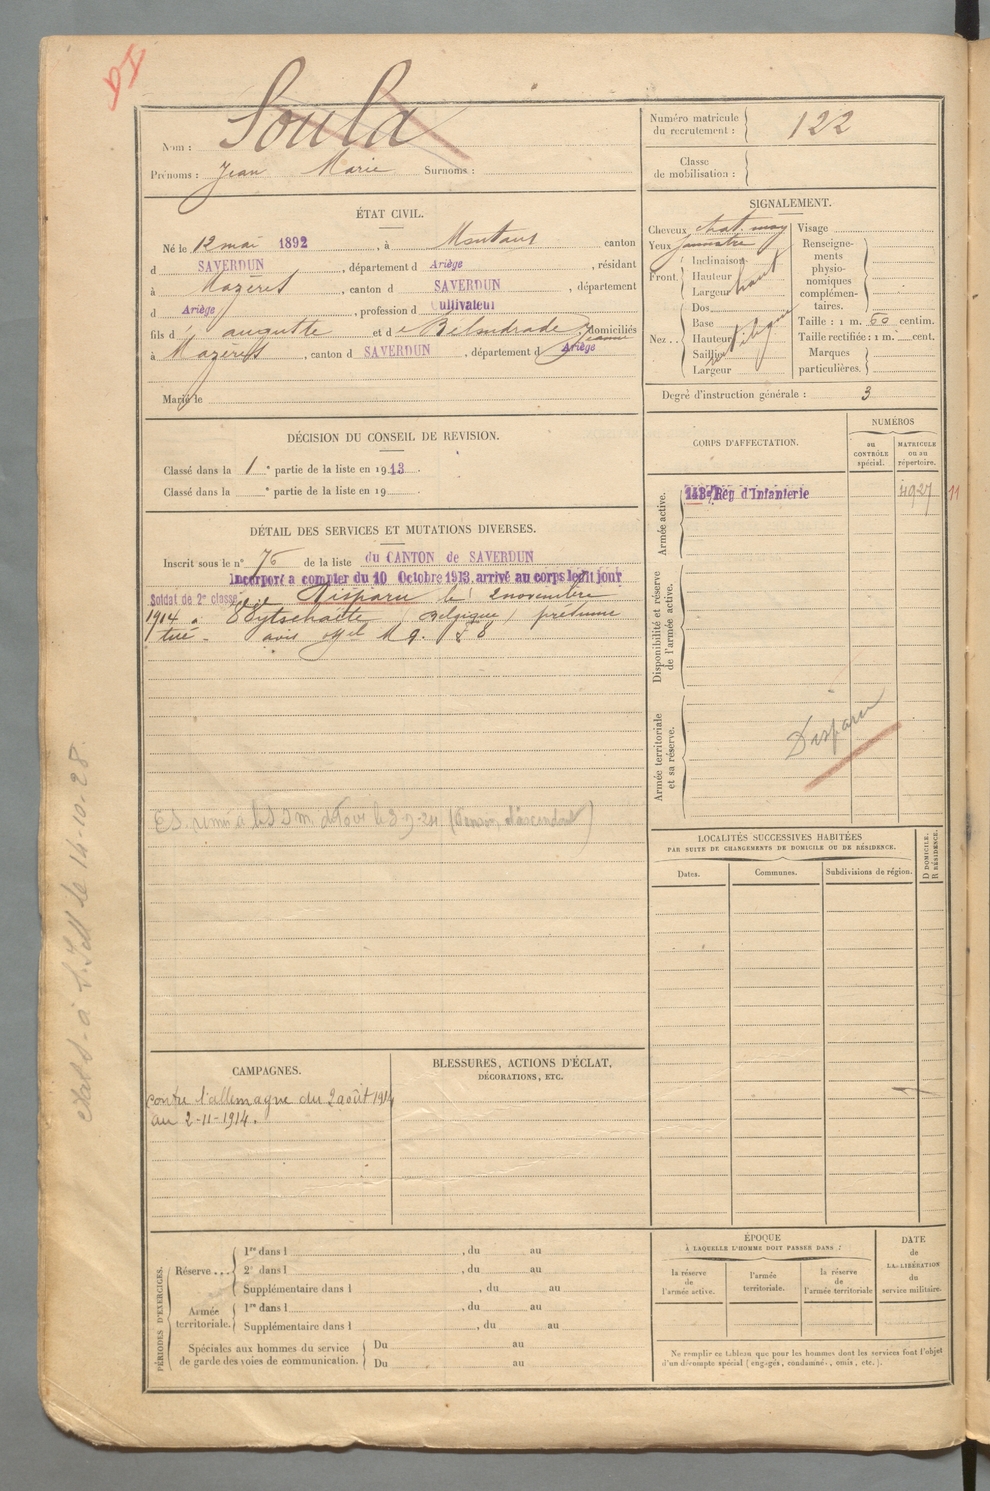 Nom : Soula
Prénoms : Jean Marie Surnoms :
Numéro matricule du recrutement : 122
Classe de mobilisation :
ÉTAT CIVIL.
Né le 12 mai 1892, à Montaut canton
d SAVERDUN, département d Ariège, résidant
à Mazères, canton d SAVERDUN, département
d Ariège, profession d Cultivateur
fils d' augustte et d e Belondrade Jeanne domiciliés
à Mazères, canton d SAVERDUN, département d Ariège
Marié le
SIGNALEMENT.
Cheveux chat. moy
Yeux jaunatre
Front. Inclinaison
Hauteur haut
Largeur
Nez... Dos
Base
Hauteur
Saillie
Largeur
Visage
Renseignements physionomiques complémentaires.
Taille : 1 m. 60 centim.
Taille rectifiée : 1 m. cent.
Marques particulières.
Degré d'instruction générale : 3
DÉCISION DU CONSEIL DE REVISION.
Classé dans la 1 e partie de la liste en 1913.
Classé dans la e partie de la liste en 19
CORPS D'AFFECTATION.
NUMÉROS
au CONTRÔLE spécial.
MATRICULE ou au répertoire.
Armée active.
143e Rég d'Infanterie 4927 11
Disponibilité et réserve de l'armée active.
Armée territoriale et sa réserve.
Disparu
DÉTAIL DES SERVICES ET MUTATIONS DIVERSES.
Inscrit sous le n° 76 de la liste du CANTON de SAVERDUN
Incorporé à compter du 10 Octobre 1913, arrivé au corps ledit jour
Soldat de 2e classe Disparu le 2 novembre
1914 à Wytschaëte Belgique, présumé
tué - avis
LOCALITÉS SUCCESSIVES HABITÉES
PAR SUITE DE CHANGEMENTS DE DOMICILE OU DE RÉSIDENCE.
Dates. Communes. Subdivisions de région. D DOMICILE. R RÉSIDENCE.
CAMPAGNES.
contre l'allemagne du 2 août 1914
au 2-11-1914.
BLESSURES, ACTIONS D'ÉCLAT,
DÉCORATIONS, ETC.
PÉRIODES D'EXERCICES.
Réserve ... 1re dans l , du au
2e dans l , du au
Supplémentaire dans l , du au
Armée territoriale. 1re dans l , du au
Supplémentaire dans l , du au
Spéciales aux hommes du service
de garde des voies de communication.
Du au
Du au
ÉPOQUE
À LAQUELLE L'HOMME DOIT PASSER DANS :
la réserve de l'armée active.
l'armée territoriale.
la réserve de l'armée territoriale
DATE de LA LIBÉRATION du service militaire.
Ne remplir ce tableau que pour les hommes dont les services font l'objet
d'un décompte spécial (engagés, condamnés, omis, etc.).